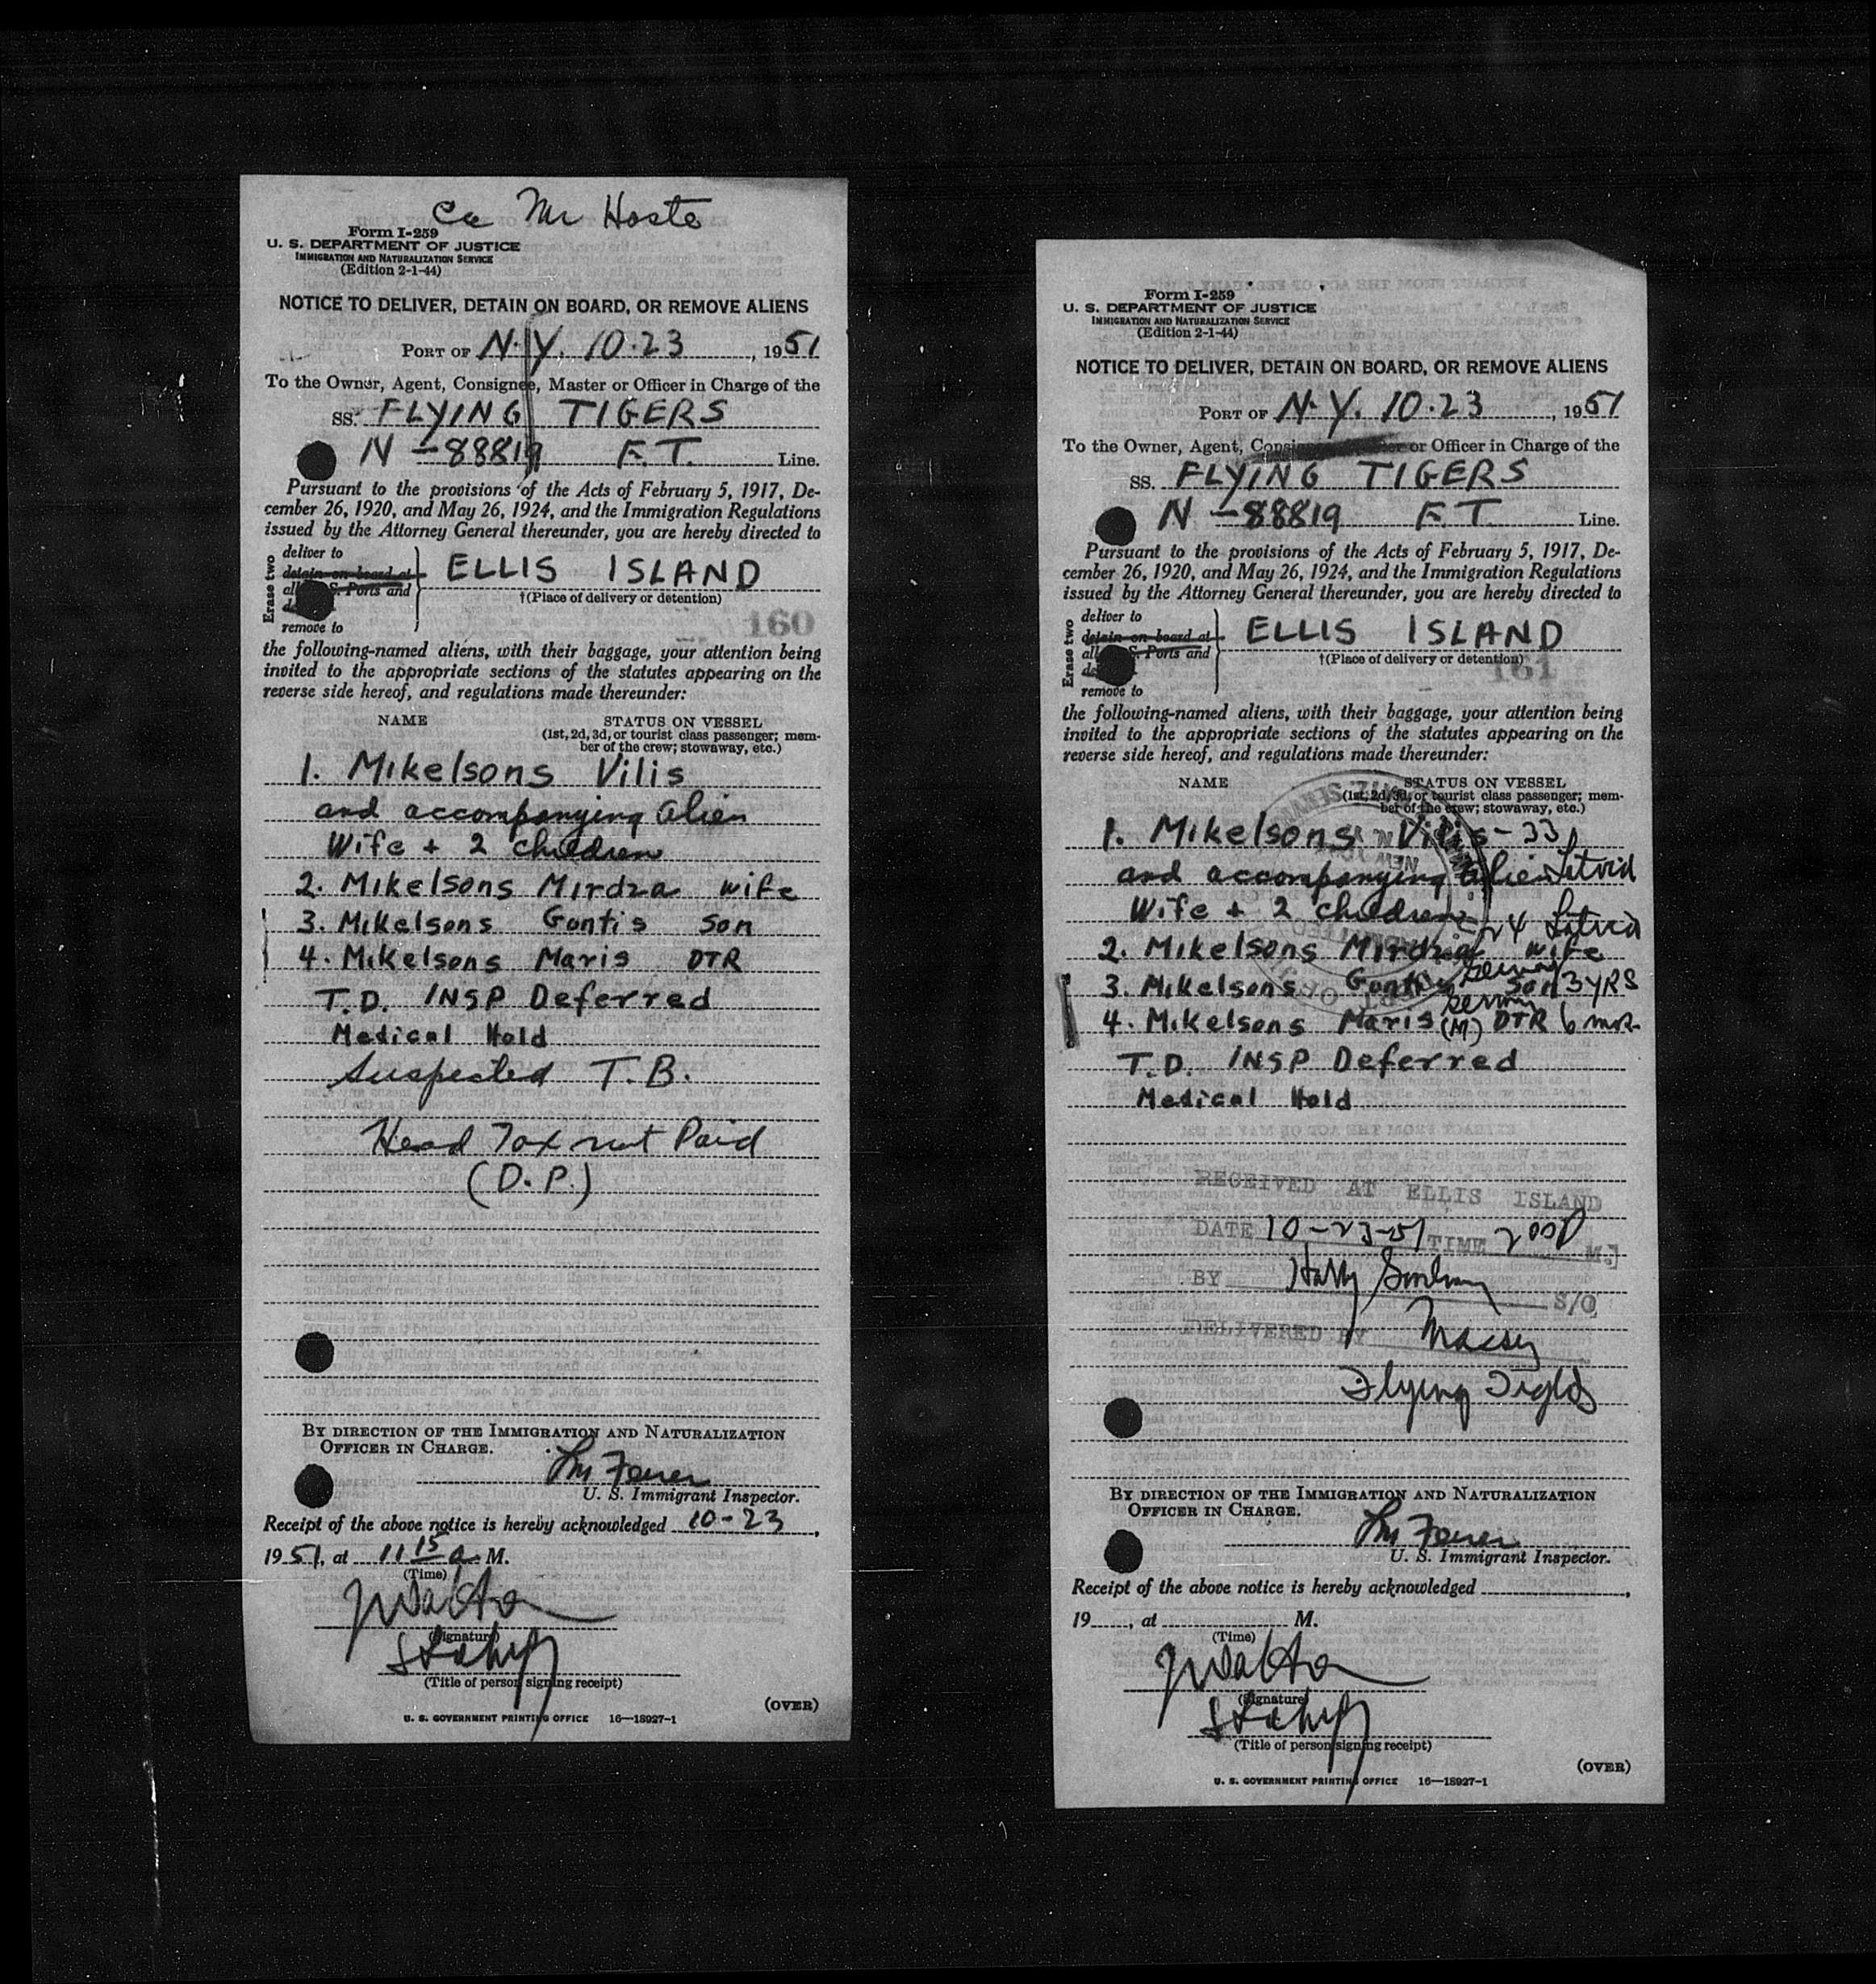 Mr Hoste
Form I-259
U. S. DEPARTMENT OF JUSTICE
IMMIGRATION AND NATURALIZATION SERVICE
(Edition 2-1-44)
NOTICE TO DELIVER, DETAIN ON BOARD, OR REMOVE ALIENS
PORT OF N.Y. 10.23, 1951
To the Owner, Agent, Consignee, Master or Officer in Charge of the
SS. FLYING TIGERS
N-88819 F.T. Line.
Pursuant to the provisions of the Acts of February 5, 1917, De-
cember 26, 1920, and May 26, 1924, and the Immigration Regulations
issued by the Attorney General thereunder, you are hereby directed to
Erase two
deliver to
detain on board at
S. Ports and
remove to
ELLIS ISLAND
†(Place of delivery or detention)
160
the following-named aliens, with their baggage, your attention being
invited to the appropriate sections of the statutes appearing on the
reverse side hereof, and regulations made thereunder:
NAME STATUS ON VESSEL
(1st, 2d, 3d, or tourist class passenger; mem-
ber of the crew; stowaway, etc.)
1. Mikelsons Vilis
and accompanying alien
Wife + 2 children
2. Mikelsons Mirdza wife
3. Mikelsons Gontis Son
4. Mikelsons Maris DTR
T.D. INSP Deferred
Medical Hold
Suspected T.B.
Head Tax not Paid
(D.P.)
BY DIRECTION OF THE IMMIGRATION AND NATURALIZATION
OFFICER IN CHARGE.
U. S. Immigrant Inspector.
Receipt of the above notice is hereby acknowledged 10-23,
1951, at 11 15 a M.
(Time)
(Signature)
(Title of person signing receipt)
(OVER)
U. S. GOVERNMENT PRINTING OFFICE 16—18927-1
Form I-259
U. S. DEPARTMENT OF JUSTICE
IMMIGRATION AND NATURALIZATION SERVICE
(Edition 2-1-44)
NOTICE TO DELIVER, DETAIN ON BOARD, OR REMOVE ALIENS
PORT OF N.Y. 10.23, 1951
To the Owner, Agent, or Officer in Charge of the
SS. FLYING TIGERS
N-88819 F.T. Line.
Pursuant to the provisions of the Acts of February 5, 1917, De-
cember 26, 1920, and May 26, 1924, and the Immigration Regulations
issued by the Attorney General thereunder, you are hereby directed to
Erase two
deliver to
detain on board at
S. Ports and
remove to
ELLIS ISLAND
†(Place of delivery or detention)
161
the following-named aliens, with their baggage, your attention being
invited to the appropriate sections of the statutes appearing on the
reverse side hereof, and regulations made thereunder:
NAME STATUS ON VESSEL
(1st, 2d, 3d, or tourist class passenger; mem-
ber of the crew; stowaway, etc.)
1. Mikelsons Vilis - 33
and accompanying alien
Wife + 2 children 24
2. Mikelsons Mirdza wife
3. Mikelsons Gontis Son 3 YRS
4. Mikelsons Maris (M) DTR 6 mos.
T.D. INSP Deferred
Medical Hold
RECEIVED AT ELLIS ISLAND
DATE 10-23-51 TIME 2 00 P M.
BY Harry S/O
DELIVERED BY Massey
Flying Tigers
BY DIRECTION OF THE IMMIGRATION AND NATURALIZATION
OFFICER IN CHARGE.
U. S. Immigrant Inspector.
Receipt of the above notice is hereby acknowledged ,
19 , at M.
(Time)
(Signature)
(Title of person signing receipt)
(OVER)
U. S. GOVERNMENT PRINTING OFFICE 16—18927-1